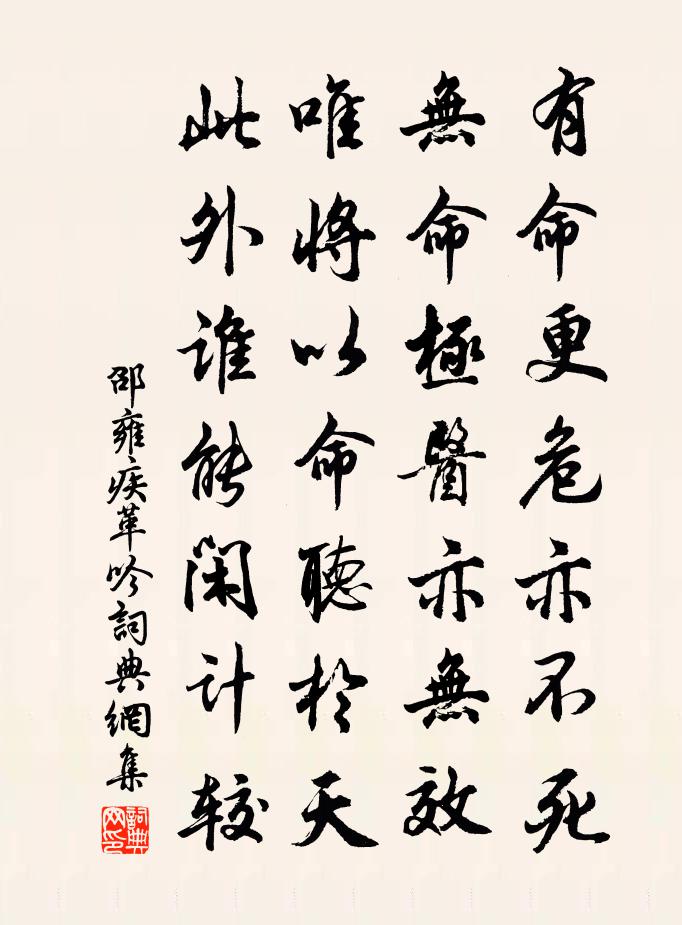 有命更危亦不死
無命極醫亦無效
唯將以命聽於天
此外誰能閑計較
邵雍疾革吟詞典網集
詞典網印